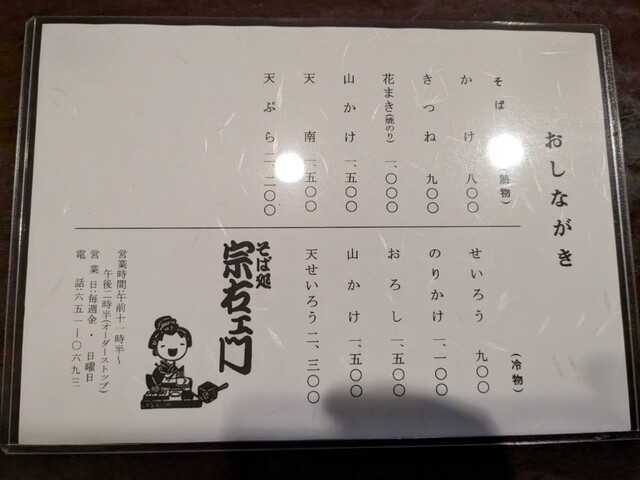 おしながき
そば(熱物)
かけ 八〇〇
きつね 九〇〇
花まき(焼のり) 一、〇〇〇
山かけ 一、五〇〇
天南 一、五〇〇
天ぷら 二、二〇〇
(冷物)
せいろう 九〇〇
のりかけ 一、一〇〇
おろし 一、五〇〇
山かけ 一、五〇〇
天せいろう 二、三〇〇
そば処
宗右ェ門
営業時間:午前十一時半〜
午後二時半(オーダーストップ)
営業日:毎週金・日曜日
電話:六五一ー〇六九三